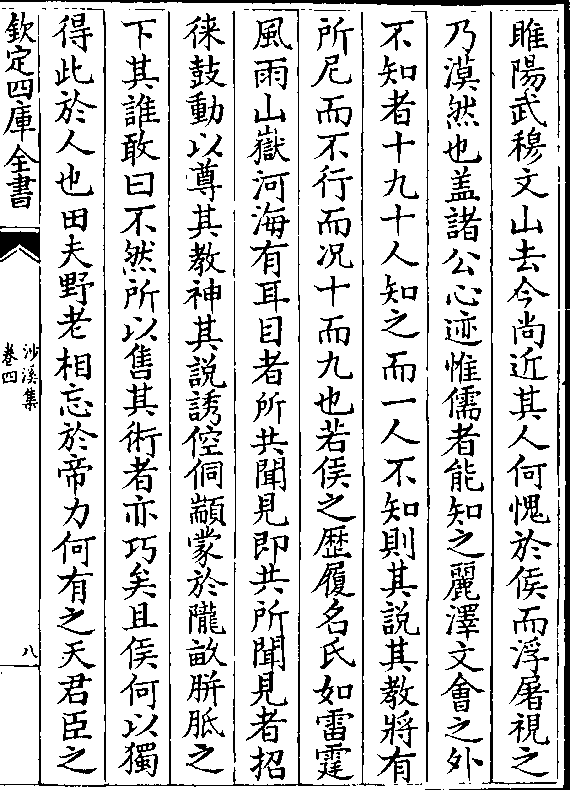 睢陽武穆文山去今尚近其人何愧於侯而浮屠視之
乃漠然也盖諸公心迹惟儒者能知之麗澤文會之外
不知者十九十人知之而一人不知則其說其教將有
所尼而不行而况十而九也若侯之歴履名氏如雷霆
風雨山嶽河海有耳目者所共聞見即共所聞見者招
徠鼓動以尊其教神其說誘倥侗顓蒙於隴畝胼胝之
下其誰敢曰不然所以售其術者亦巧矣且侯何以獨
得此於人也田夫野老相忘於帝力何有之天君臣之
欽定四庫全書
沙溪集
卷四
八